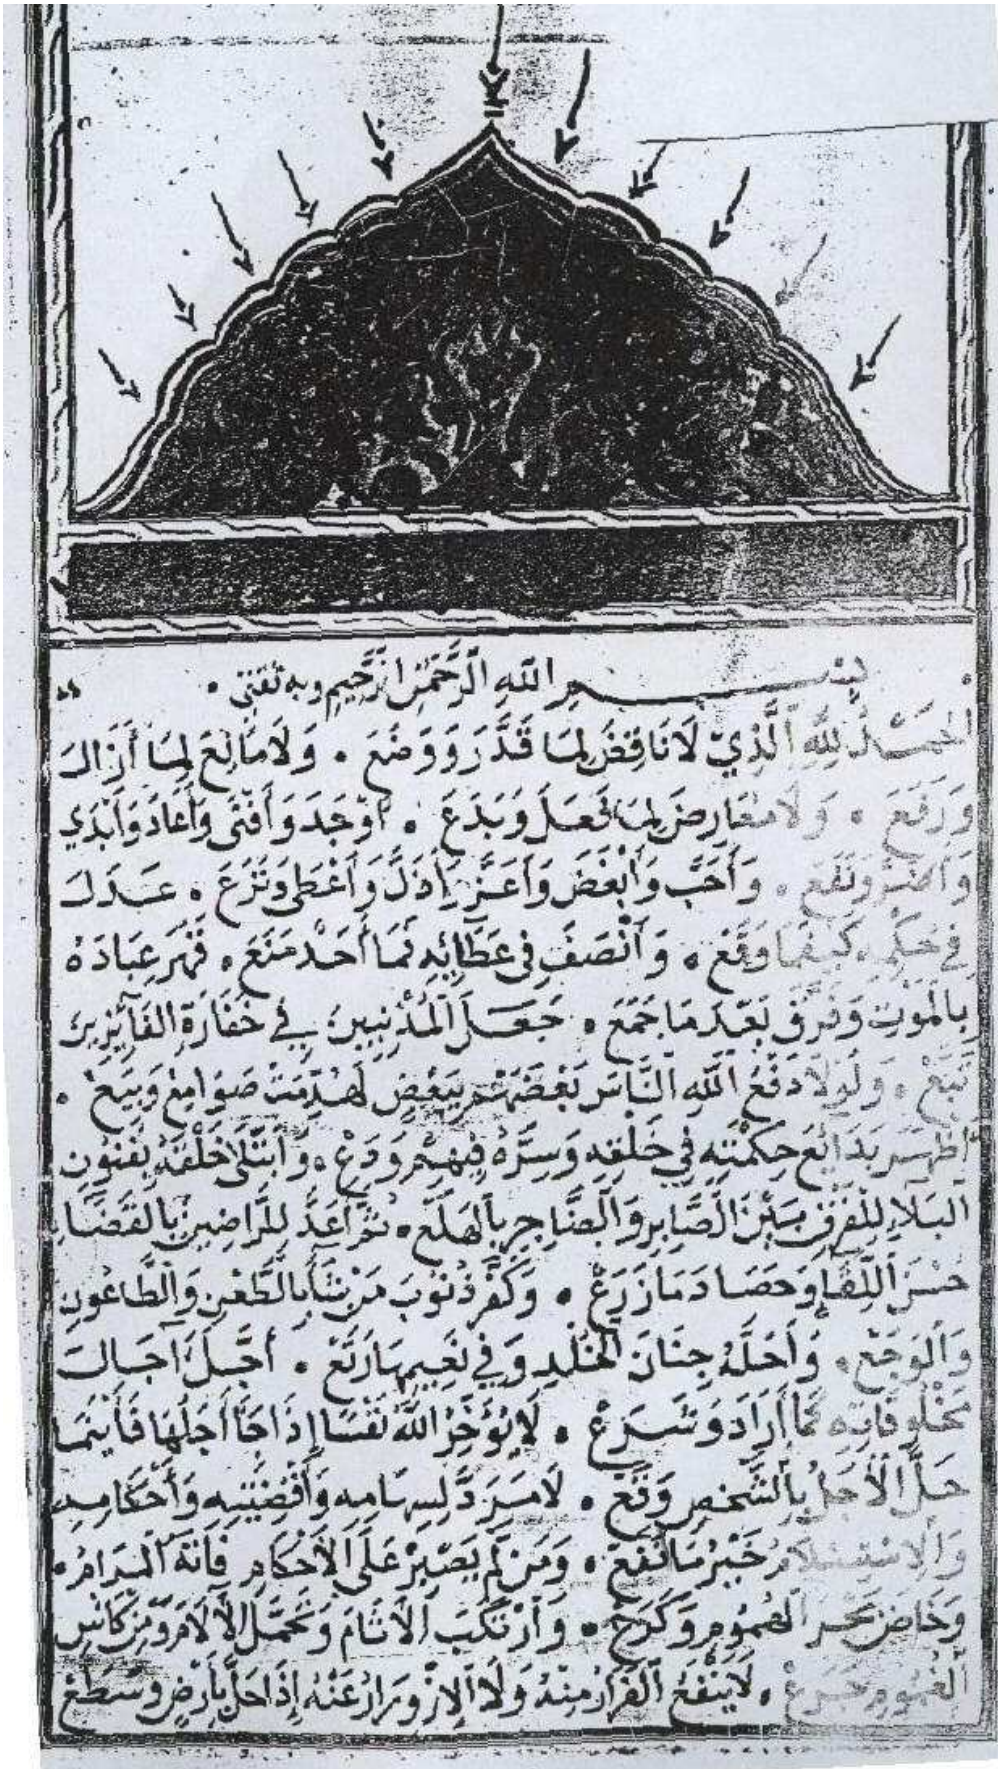 بِسْمِ اللَّهِ الرَّحْمَنِ الرَّحِيمِ وبه ثقتى
الْحَمْدُ لِلَّهِ الَّذِي لَا نَاقِضَ لِمَا قَدَّرَ وَوَضَعَ . وَلَا مَانِعَ لِمَا أَزَالَ
وَرَفَعَ . وَلَا مُعَارِضَ لِمَا فَعَلَ وَبَدَعَ . أَوْجَدَ وَأَفْنَى وَأَعَادَ وَأَبْدَي
وَأَضَرَّ وَنَفَعَ . وَأَحَبَّ وَأَبْغَضَ وَأَعَزَّ وَأَذَلَّ وَأَعْطَى وَنَزَعَ . عَدَلَ
فِي حُكْمِهِ كَيْفَمَا وَقَعَ . وَأَنْصَفَ فِي عَطَائِهِ فَمَا أَحَدٌ مَنَعَ . قَهَرَ عِبَادَهُ
بِالْمَوْتِ وَفَرَّقَ بَعْدَ مَا جَمَعَ . جَعَلَ الْمُذْنِبِينَ فِي خَفَارَةِ الْفَآئِزِينَ
تَبَعْ . وَلَوْلَا دَفْعُ اللَّهِ النَّاسَ بَعْضَهُمْ بِبَعْضٍ لَهُدِّمَتْ صَوَامِعُ وَبِيَعْ .
أَظْهَرَ بَدَائِعَ حِكْمَتِهِ فِي خَلْقِهِ وَسِرَّهُ فِيهِمْ وَدَعْ . وَابْتَلَى خَلْقَهُ بِفُنُونِ
الْبَلَاءِ لِلْفَرْقِ بَيْنَ الصَّابِرِ وَالضَّاجِرِ بِالْهَلَعْ . ثُمَّ أَعَدَّ لِلرَّاضِينَ بِالْقَضَاءِ
حُسْنَ اللِّقَاءِ وَحَصَادَ مَا زَرَعْ . وَكَفَّرَ ذُنُوبَ مَنْ شَآءَ بِالطَّعْنِ وَالطَّاعُونِ
وَالْوَجَعْ . وَأَحَلَّهُ جِنَانَ الْخُلْدِ وَفِي نَعِيمِهَا رَتَعْ . أَجَّلَ آجَالَ
مَخْلُوقَاتِهِ كَمَا أَرَادَ وَشَرَعْ . لَا يُؤَخِّرُ اللَّهُ نَفْسًا إِذَا جَآءَ أَجَلُهَا فَأَيْنَمَا
حَلَّ الْأَجَلُ بِالشَّخْصِ وَقَعْ . لَا مَرَدَّ لِسِهَامِهِ وَأَقْضِيَتِهِ وَأَحْكَامِهِ
وَالِاسْتِسْلَامُ خَيْرُ مَا نَفَعْ . وَمَنْ لَمْ يَصْبِرْ عَلَى الْأَحْكَامِ فَاتَهُ الْمَرَامُ .
وَخَاضَ بَحْرَ الْهُمُومِ وَكَرَعْ . وَارْتَكَبَ الْآثَامَ وَتَحَمَّلَ الْآلَامَ وَمِنْ كَأْسِ
الْغُمُومِ جَرَعْ . لَا يَنْفَعُ الْفِرَارُ مِنْهُ وَلَا الِازْوِرَارُ عَنْهُ إِذَا حَلَّ بِأَرْضٍ وَسَطَعْ